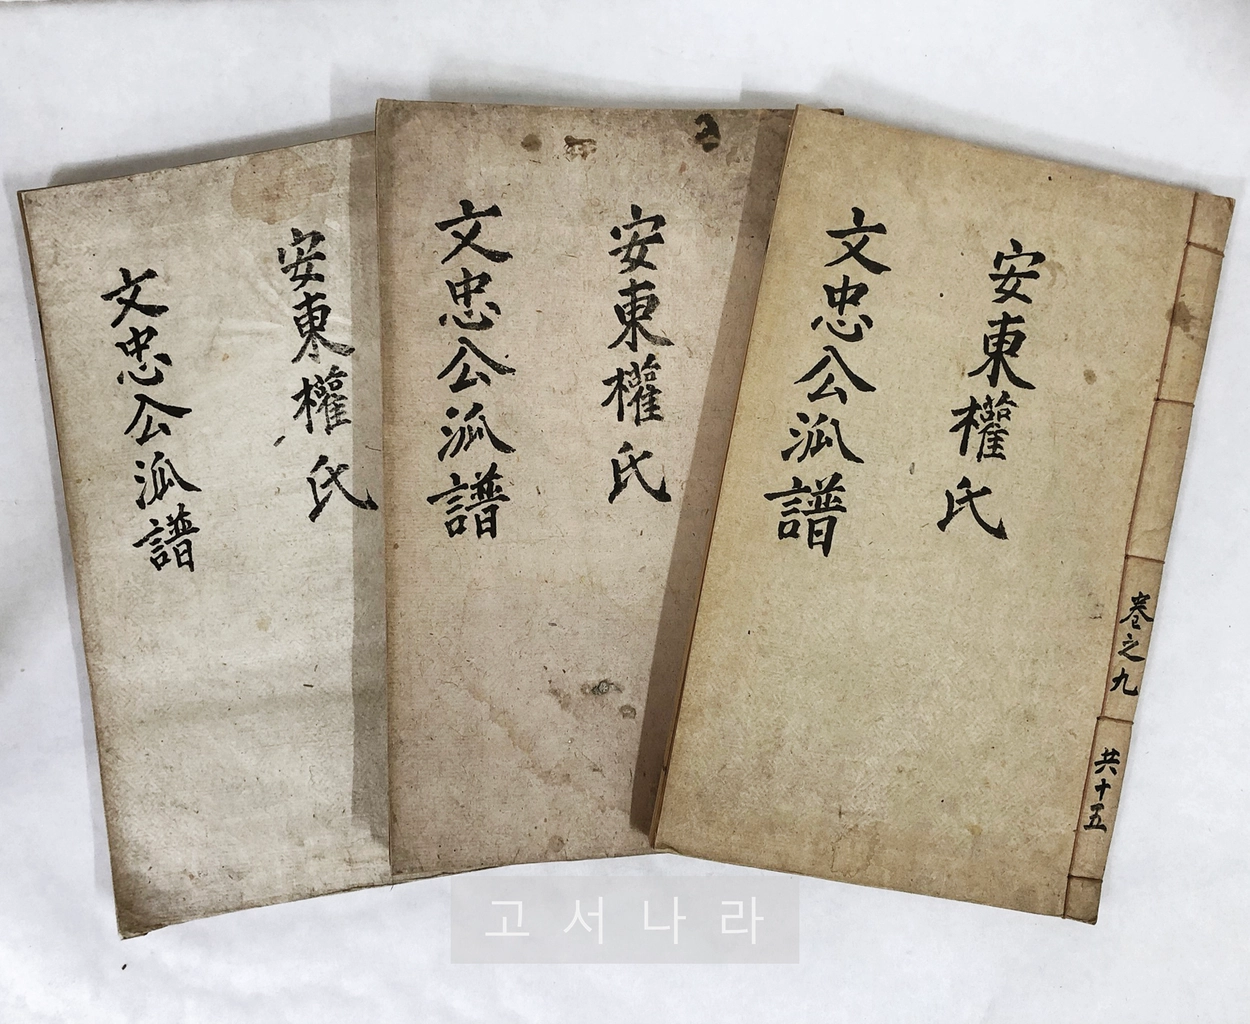 安東權氏
文忠公派譜
安東權氏
文忠公派譜
安東權氏
文忠公派譜
卷之九
共十五
고서나라